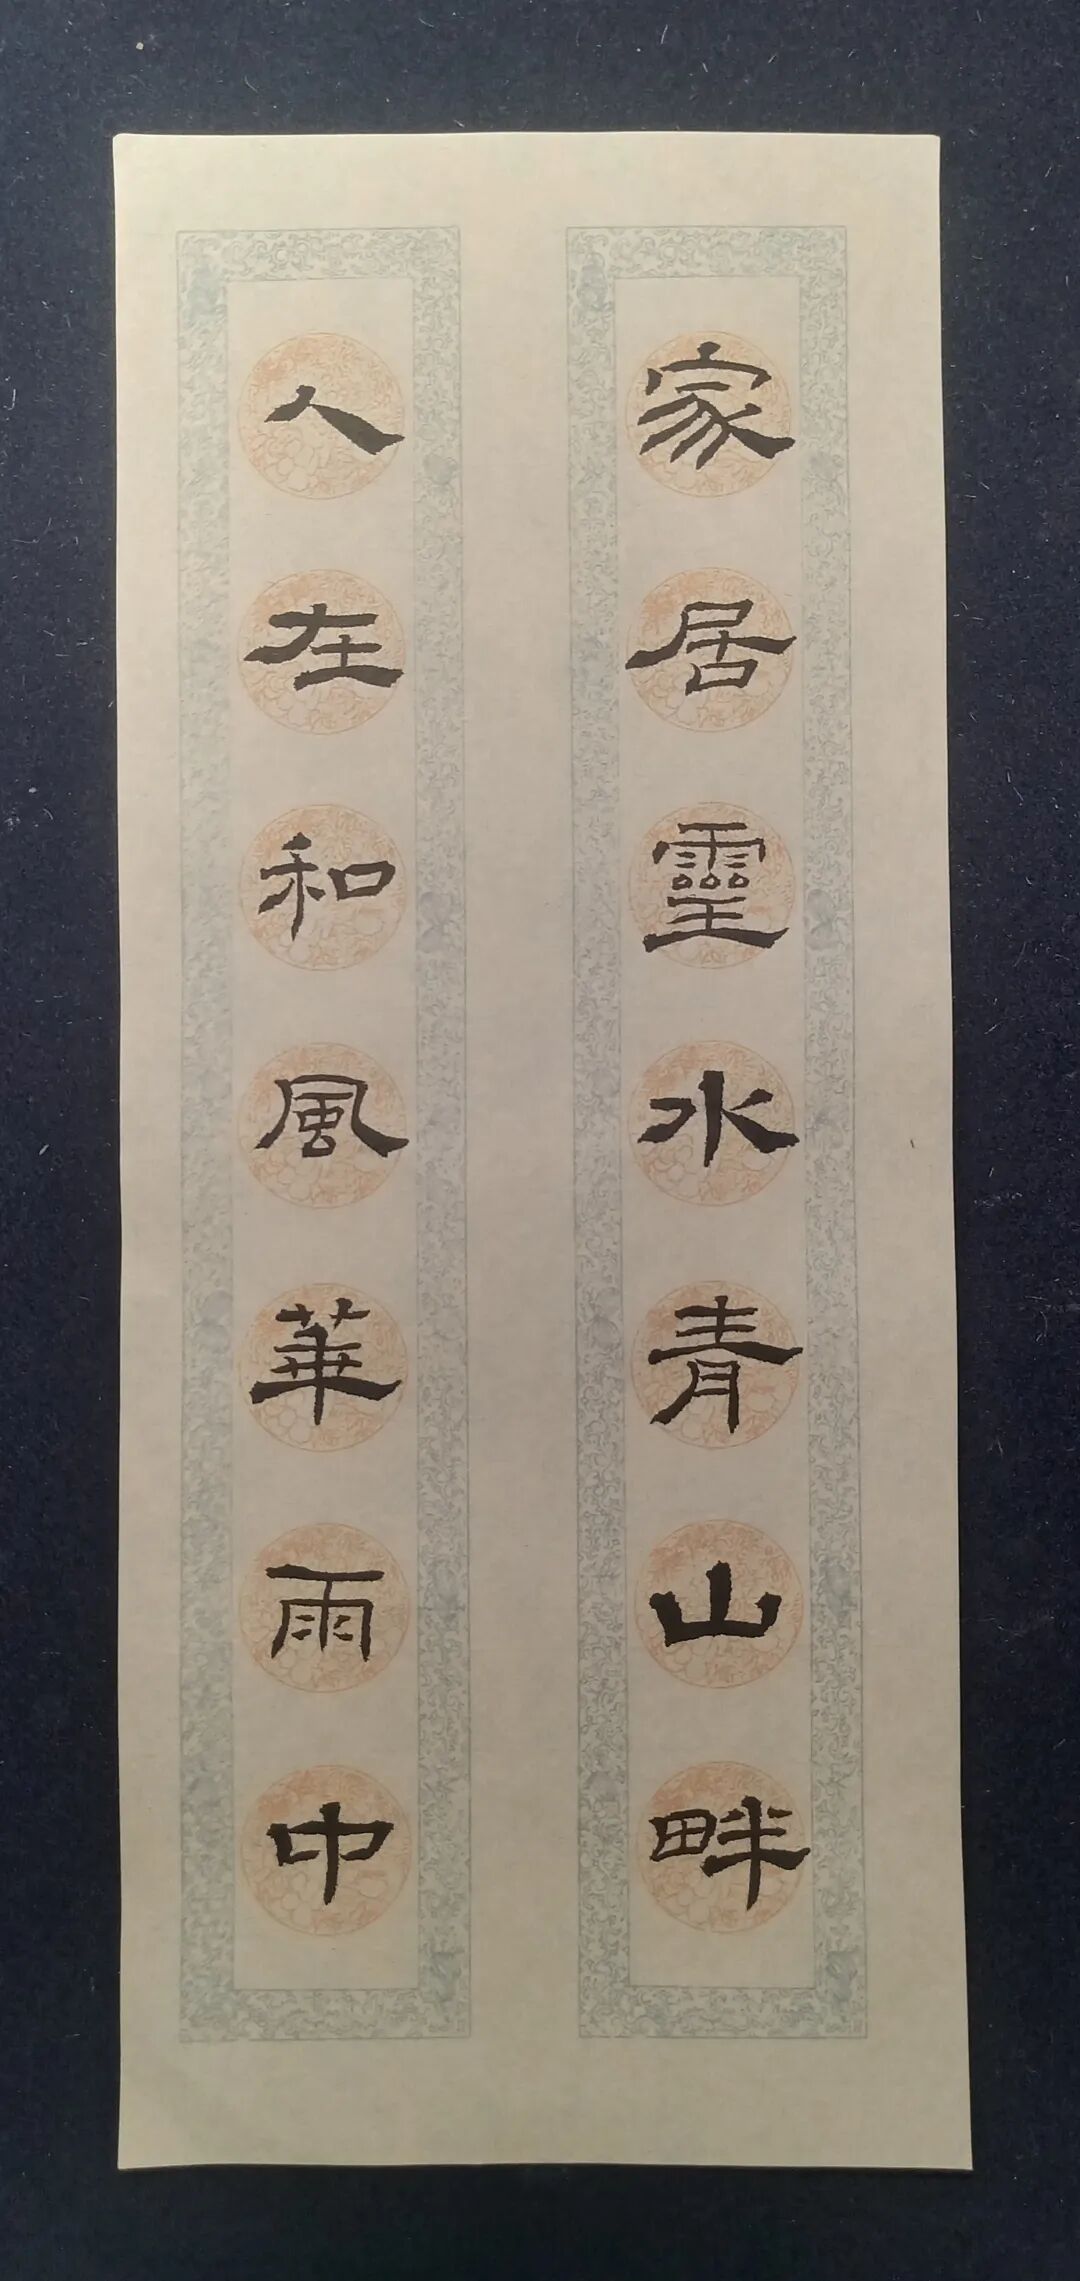 家居靈水青山畔
人在和風華雨中